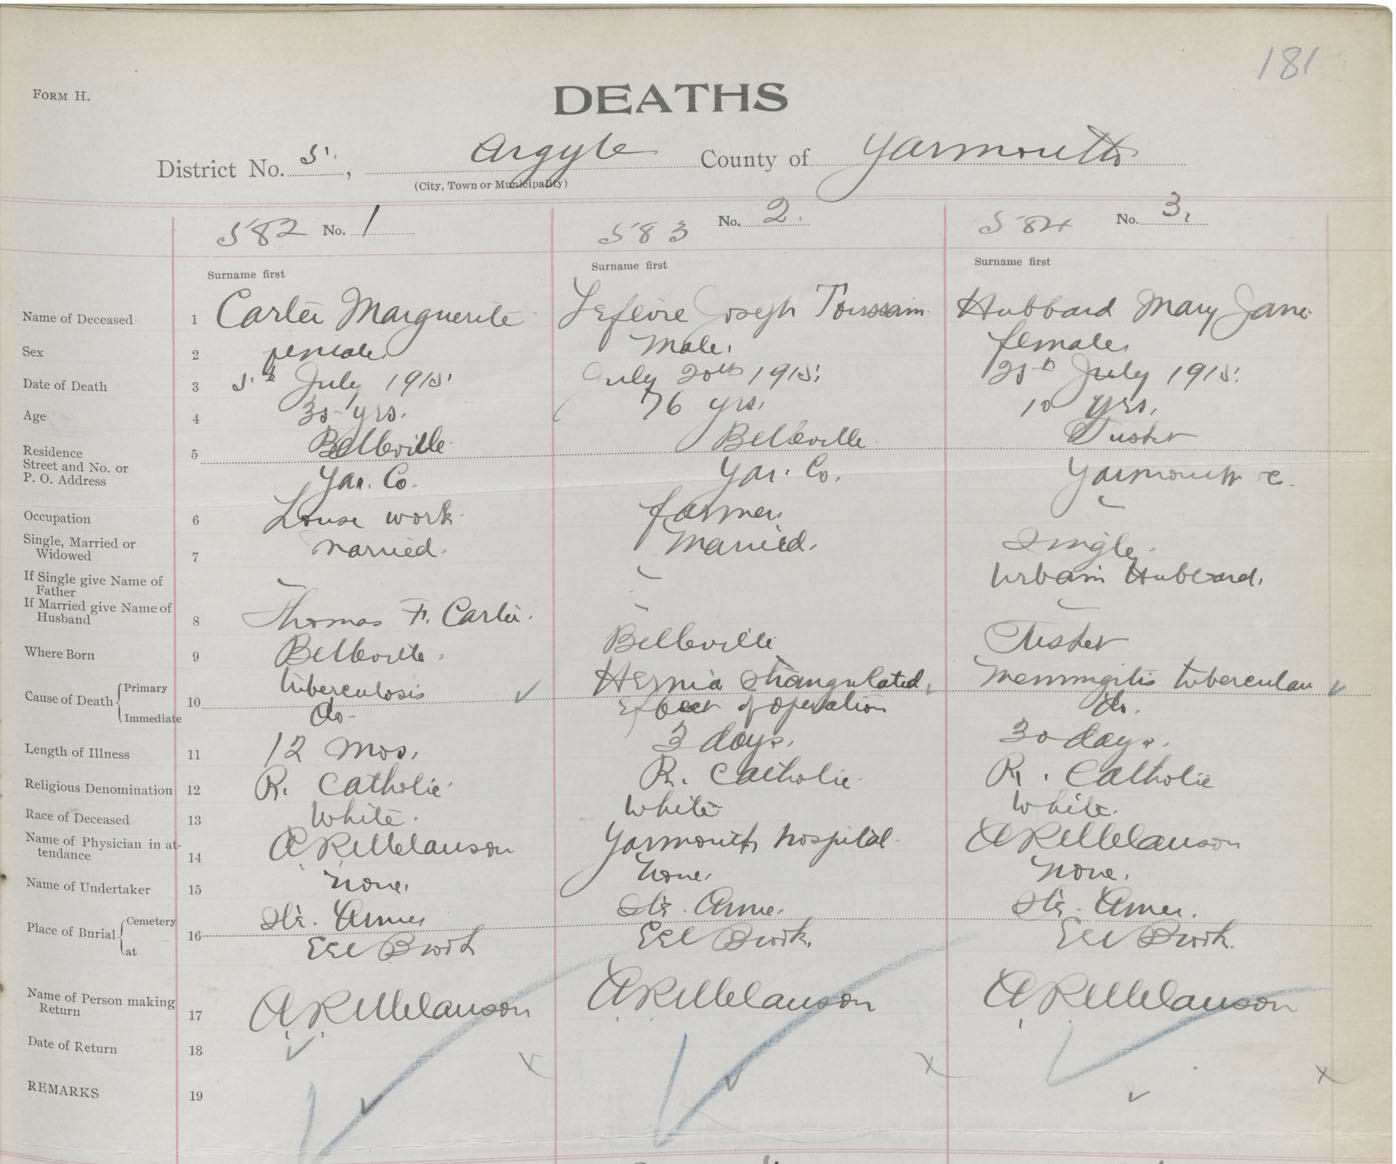 181
FORM H.
DEATHS
District No. 5, Argyle County of Yarmouth
(City, Town or Municipality)
582 No. 1 583 No. 2. 584 No. 3,
Surname first Surname first Surname first
Name of Deceased 1 Carter Marguerite Lefevre Joseph Toussain Hubbard Mary Jane
Sex 2 female. Male. female.
Date of Death 3 5th July 1915. July 20th 1915. 25th July 1915.
Age 4 35 yrs. 76 yrs. 10 yrs.
Residence Street and No. or P. O. Address 5 Belleville Belleville Tusket
Yar. Co. Yar. Co. Yarmouth Co.
Occupation 6 House work farmer.
Single, Married or Widowed 7 married. Married. Single.
If Single give Name of Father Urbain Hubbard.
If Married give Name of Husband 8 Thomas F. Carter.
Where Born 9 Belleville. Belleville Tusket
Cause of Death { Primary Tuberculosis Hernia strangulated, Meningitis tubercular
Immediate 10 do Effect of operation do.
Length of Illness 11 12 mos. 3 days. 30 days.
Religious Denomination 12 R. Catholic. R. Catholic. R. Catholic
Race of Deceased 13 White. White White.
Name of Physician in attendance 14 A R Melanson Yarmouth hospital. A R Melanson
Name of Undertaker 15 none. none. none.
Place of Burial { Cemetery 16 Ste. Annes Ste. Anne. Ste. Annes.
at Eel Brook Eel Brook. Eel Brook.
Name of Person making Return 17 A R Melanson A R Melanson A R Melanson
Date of Return 18
REMARKS 19